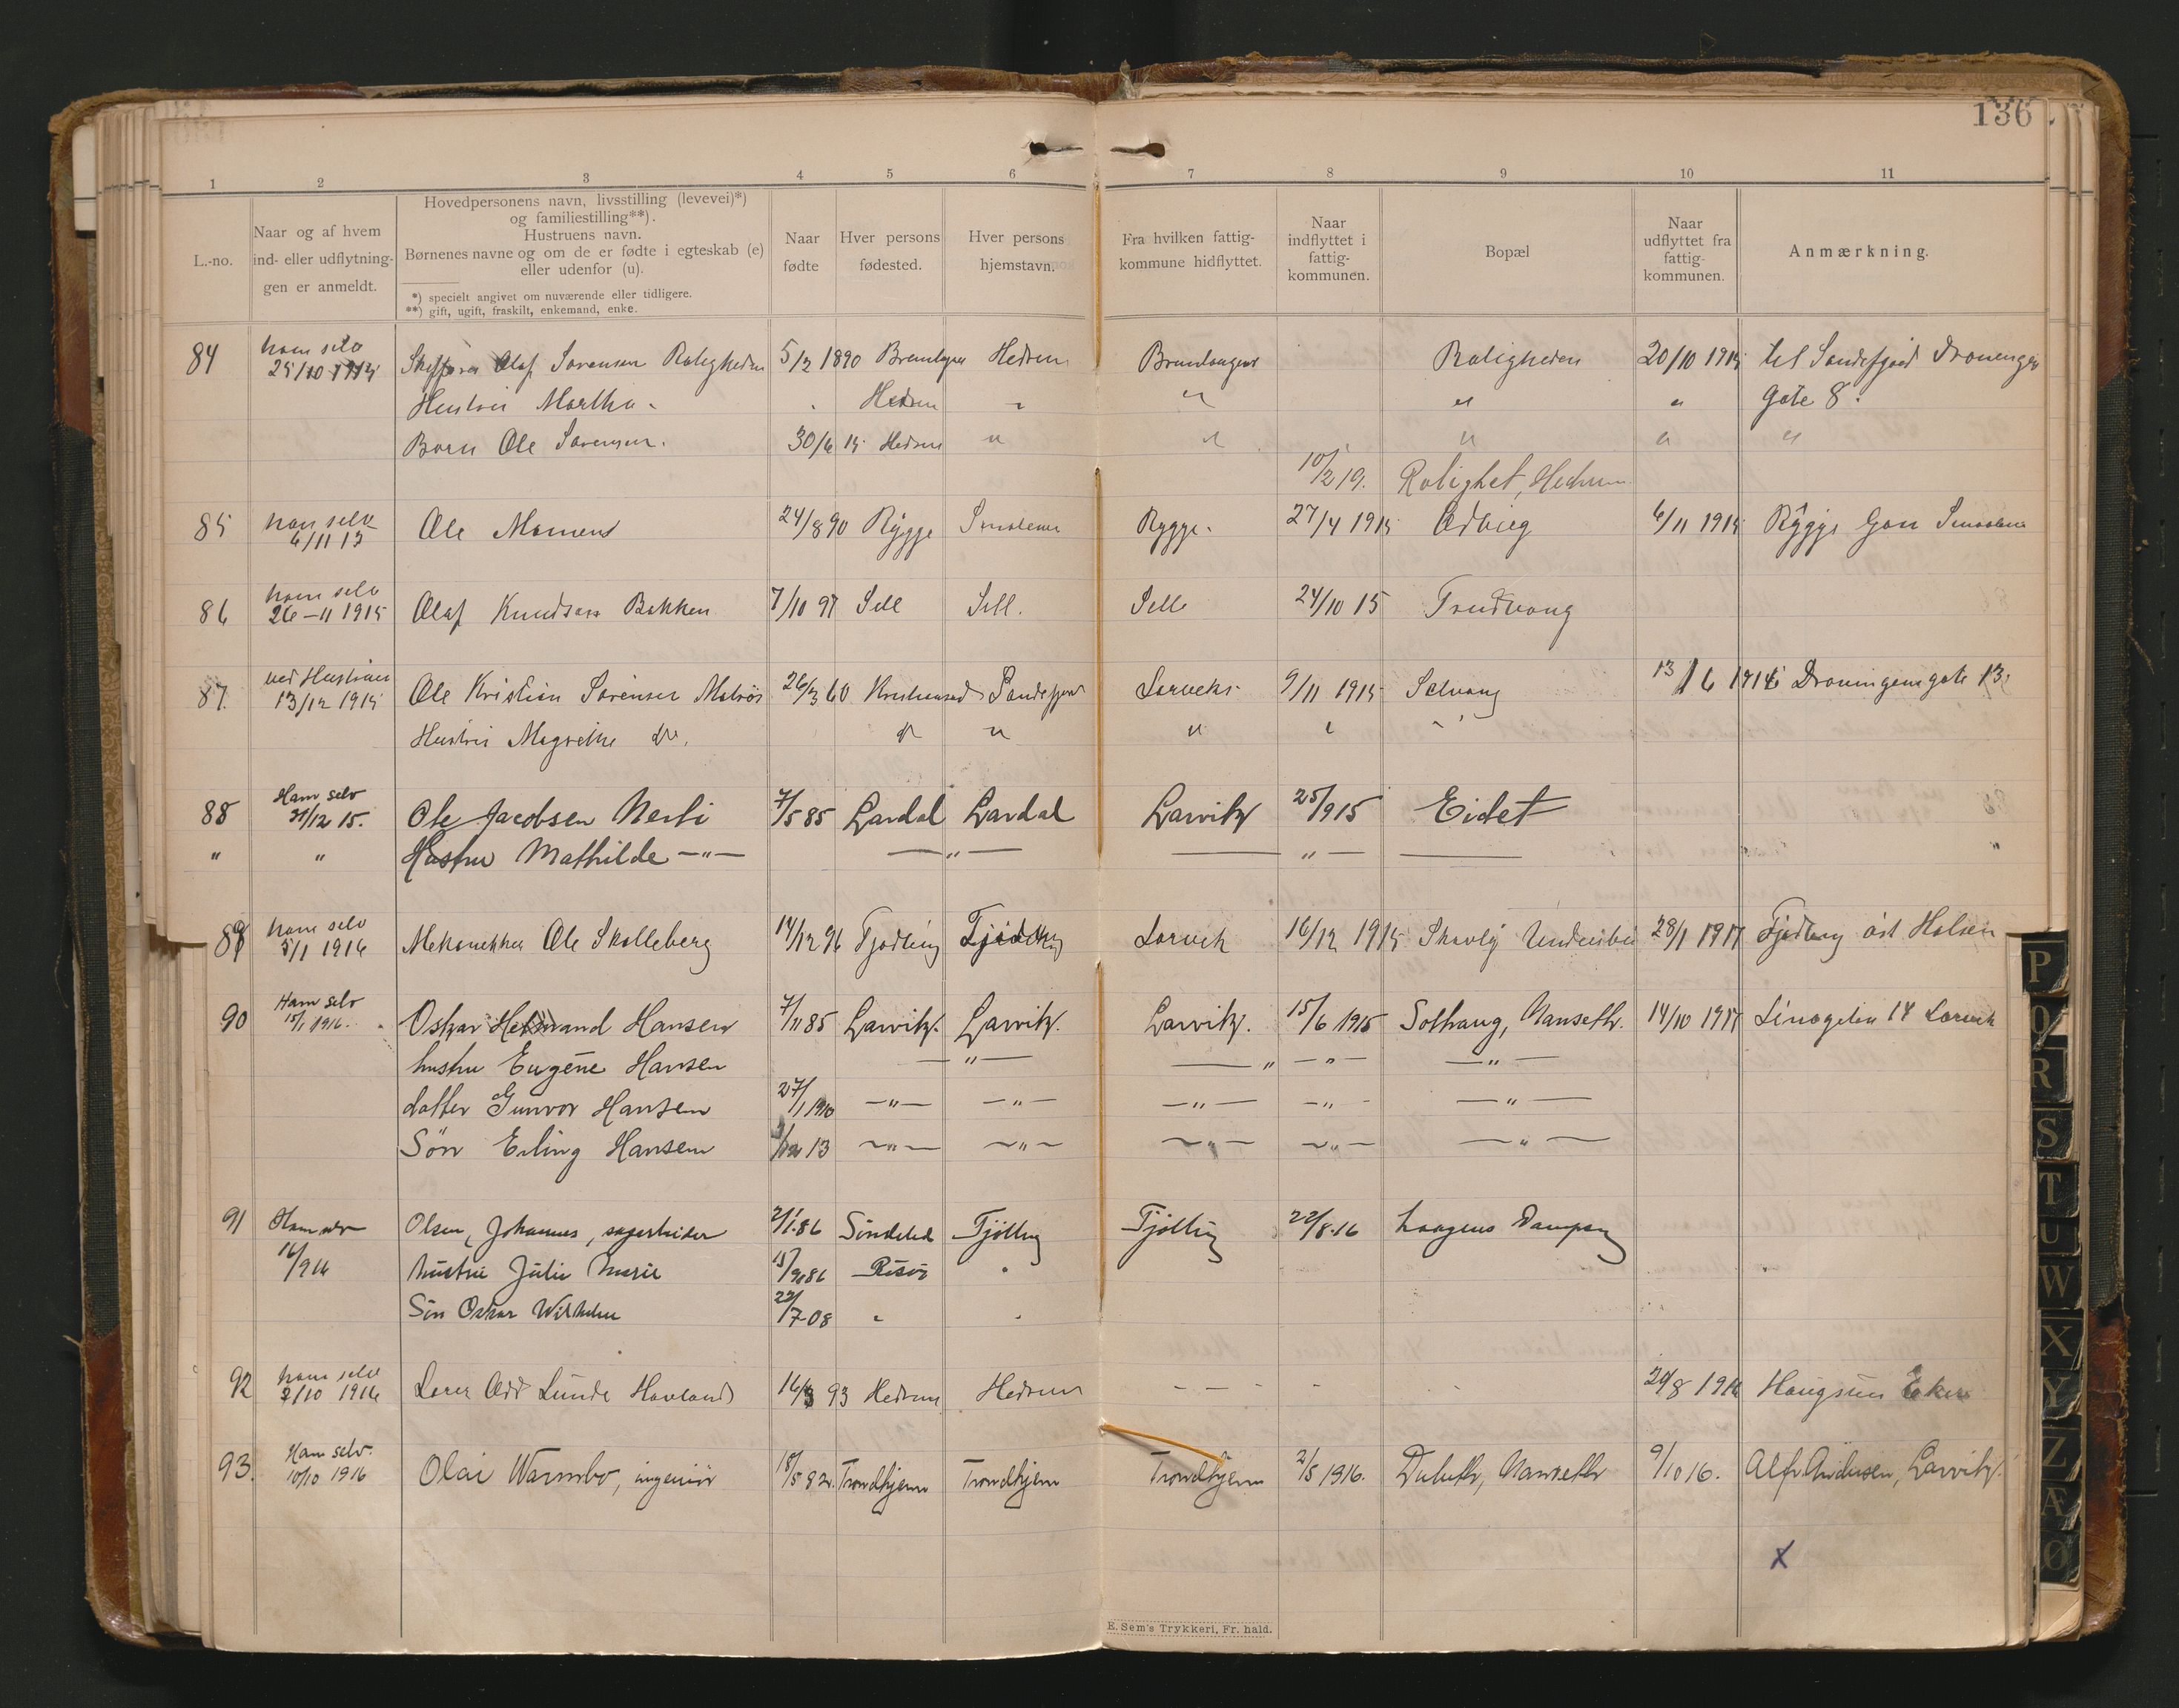 136.
1 2 3 4 5 6 7 8 9 10 11
L.-no.
Naar og af hvem
ind- eller udflytnin-
gen er anmeldt.
Hovedpersonens navn, livsstilling (levevei)*)
og familiestilling**).
Hustruens navn.
Børnenes navne og om de er fødte i egteskab (e)
eller udenfor (u).
*) specielt angivet om nuværende eller tidligere.
**) gift, ugift, fraskilt, enkemand, enke.
Naar
fødte
Hver persons
fødested.
Hver persons
hjemstavn.
Fra hvilken fattig-
kommune hidflyttet.
Naar
indflyttet i
fattig-
kommunen.
Bopæl
Naar
udflyttet fra
fattig-
kommunen.
Anmærkning.
84 ham selv
25/10 1915 Olaf Sørensen Roligheden 5/2 1890 Hedrum Roligheden 20/10 1915 til Sandefjord Dronningen
Hustru Martha " Hedrum " " " " Gate 8.
Barn Ole Sørensen. 30/6 15 Hedrum " " " " "
10/2 19. Rolighet, Hedrum
85 ham selv
6/11 15 Ole Momens 24/8 90 Rygge Smålene Rygge. 27/4 1915 6/11 1915 Rygge
86 ham selv
26-11 1915 Olaf Knudsen Bakken 7/10 97 Sell Sell. Sell 24/10 15 Trudvang
87. ved Hustruen
13/12 1915 Ole Kristian Sørensen Matros 26/3 60 Sandefjord Larvik 9/11 1915 Solvang 13/6 1916 Dronningensgate 13.
Hustru Magrethe do. " " " "
88 Ham selv
31/12 15. Ole Jacobsen Nerli 7/5 85 Lardal Lardal Larvik 25/9 15 Eidet
" " Hustru Mathilde —"— —"— —"—
89 ham selv
5/1 1916 Mekaniker Ole Skalleberg 14/12 96 Tjødling Tjødling Larvik 16/12 1915 28/1 1917 Tjødling
90 Ham selv
15/1 1916. Oskar Hermand Hansen 7/11 85 Larvik. Larvik. Larvik. 15/6 1915 Solhaug, Nanseth. 14/10 1917 14 Larvik
hustru Eugene Hansen —"— —"— —"— —"—
datter Gunvor Hansen 27/1 1910 —"— —"— —"— —"— —"—
Søn Erling Hansen 13 —"— —"— —"— —"— —"—
91 Ham selv Olsen, Johannes, sagarbeider 2/1.86 Søndeled Tjølling Tjølling 22/8.16 Laagens Dampsag
16/9 16 hustru Julie Marie 15/9.86 Risør "
Søn Oskar Wilhelm 22/7-08 " "
92 ham selv
2/10 1916 Lærer Odd Lunde Havland 16/3 93 Hedrum Hedrum - - - - - 29/8 1916 Haugsun Eker
93. Ham selv.
10/10 1916 Olai Warmbo, ingeniør 18/5 82. Trondhjem Trondhjem Trondhjem 2/5 1916. Duluth, Nanseth 9/10 16. Alfr. Andersen, Larvik.
X
E. Sem's Trykkeri, Fr. hald.
P
Q
R
S
T
U
W
X
Y
Z
Æ
Ø